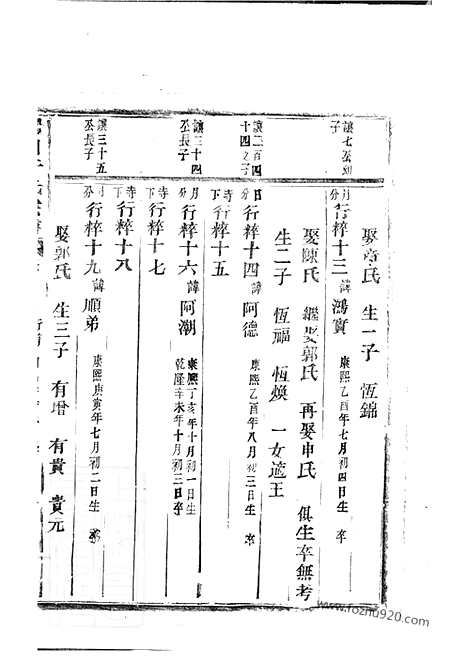 娶 氏 生一子 恆錦
讓七 子
月分 行粹十三 諱鴻實 康熙乙酉年七月初四日生 卒
娶陳氏 繼娶郭氏 再娶申氏 俱生卒無考
生二子 恆福 恆煥 一女適王
讓二百四十四之子
日分 行粹十四 諱阿德 康熙乙酉年八月初三日生 卒
寺下 行粹十五
讓三十四公長子
月分 行粹十六 諱阿潮 康熙丁亥年十月初一日生 乾隆辛未年十月初三日卒
寺下 行粹十七
寺下 行粹十八
讓三十五公長子
月分 行粹十九 諱順弟 康熙庚寅年七月初二日生
娶郭氏 生三子 有增 有貴 貴元
www.fozhu920.com